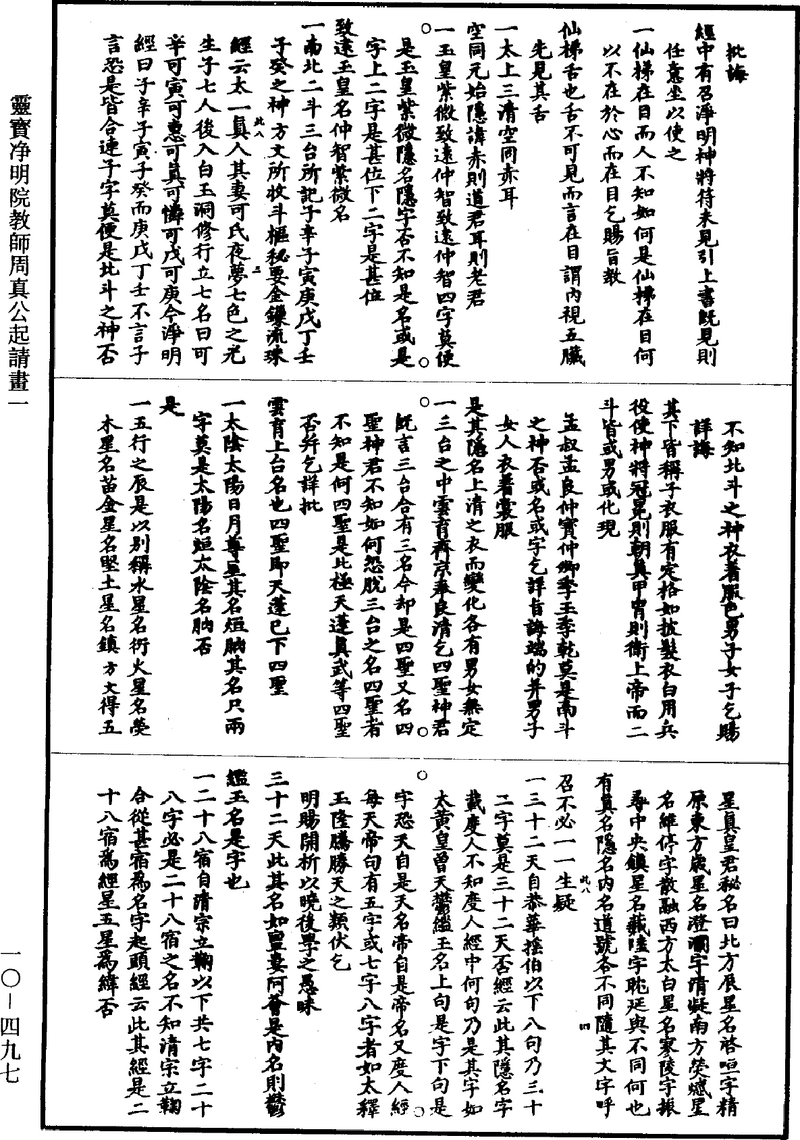 批誨
經中有召淨明神將符未見引上書既見則
任意坐以使之
一仙梯在目而人不知如何是仙梯在目何
以不在於心而在目乞賜旨教
仙梯舌也舌不可見而言在目謂內視五臟
先見其舌
一太上三清空同赤耳
空同元始隱諱赤則道君耳則老君
一玉皇紫微致遠仲智致遠仲智四字莫便
是玉皇紫微隱名隱字否不知是名或是
字上二字是甚位下二字是甚位
致遠玉皇名仲智紫微名
一南北二斗三台所記子辛子寅庚戊丁壬
子癸之神方丈所收斗樞秘要金鏁流珠
經云太一真人其妻可氏夜夢七色之光
生子七人後入白玉洞修行立七名曰可
辛可寅可惠可真可憐可戊可庚今淨明
經曰子辛子寅子癸而庚戊丁壬不言子
言恐是皆合連子字莫便是北斗之神否
不知北斗之神衣著服色男子女子乞賜
詳誨
其下皆稱子衣服有定格如披髮衣白用兵
役使神將冠冕則朝真甲冑則衛上帝而二
斗皆或男或化現
孟叔孟良仲賓仲卿季玉季乾莫是南斗
之神否或名或字乞詳旨誨端的并男子
女人衣著裳服
是其隱名上清之衣而變化各有男女無定
一三台之中雲育齊京奉良清乞四聖神君
既言三台合有三名今却是四聖又名四
聖神君不知如何恐脫三台之名四聖者
不知是何四聖是北極天蓬真武等四聖
否并乞詳批
雲育上台名也四聖即天蓬已下四聖
一太陰太陽日月尊星其名烜朒其名只兩
字莫是太陽名烜太陰名朒否
是
一五行之辰是以別稱水星名衍火星名熒
木星名苗金星名堅土星名鎮方丈得五
星真皇君秘名曰北方辰星名啓咺字精
原東方歲星名澄瀾字清凝南方熒惑星
名維停字散融西方太白星名寥陵字振
尋中央鎮星名藏陸字眺延與不同何也
有真名隱名內名道號各不同隨其文字呼
召不必一一生疑
一三十二天自恭華捨伯以下八句乃三十
二字莫是三十二天否經云此其隱名字
載度人不知度人經中何句乃是其字如
太黃皇曾天鬱繿玉名上句是字下句是
字恐天自是天名帝自是帝名又度人經
每天帝句有五字或七字八字者如太釋
玉隆騰勝天之類伏乞
明賜開析以曉後學之愚昧
三十二天此其名如豐妻阿薈是內名則鬱
鑑玉名是字也
一二十八宿自清宗立鞠以下共七字二十
八字必是二十八宿之名不知清宗立鞠
合從甚宿為名字起頭經云此其經是二
十八宿為經星五星為緯否
靈寶净明院教師周真公起請畫一
一〇—四九七